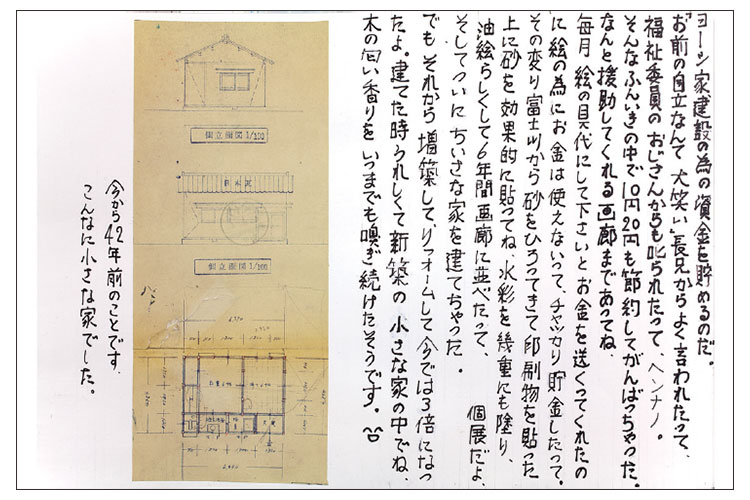 ヨーシ家建設の為の資金を貯めるのだ。
「お前の自立なんて大笑い」長兄からよく言われたって、
福祉委員のおじさんからも叱られたって、ヘンナノ。
そんなふんいきの中で10円20円も節約してがんばっちゃった。
なんと援助してくれる画廊まであってね
毎月絵の具代にして下さいとお金を送ってくれたの
に絵の為にお金は使えないって、チャッカリ貯金したって。
その変り富士川から砂をひろってきて印刷物を貼った
上に砂を効果的に貼ってね、水彩を幾重にも塗り、
油絵らしくして6年間画廊に並べたって、個展だよ、
そしてついにちいさな家を建てちゃった。
でもそれから増築して、リフォームして今では3倍になっ
たよ。建てた時うれしくて新築の小さな家の中でね、
木の匂い香りをいつまでも嗅ぎ続けたそうです。
側立面図 1/100
側立面図 1/100
今から42年前のことです、
こんなに小さな家でした。